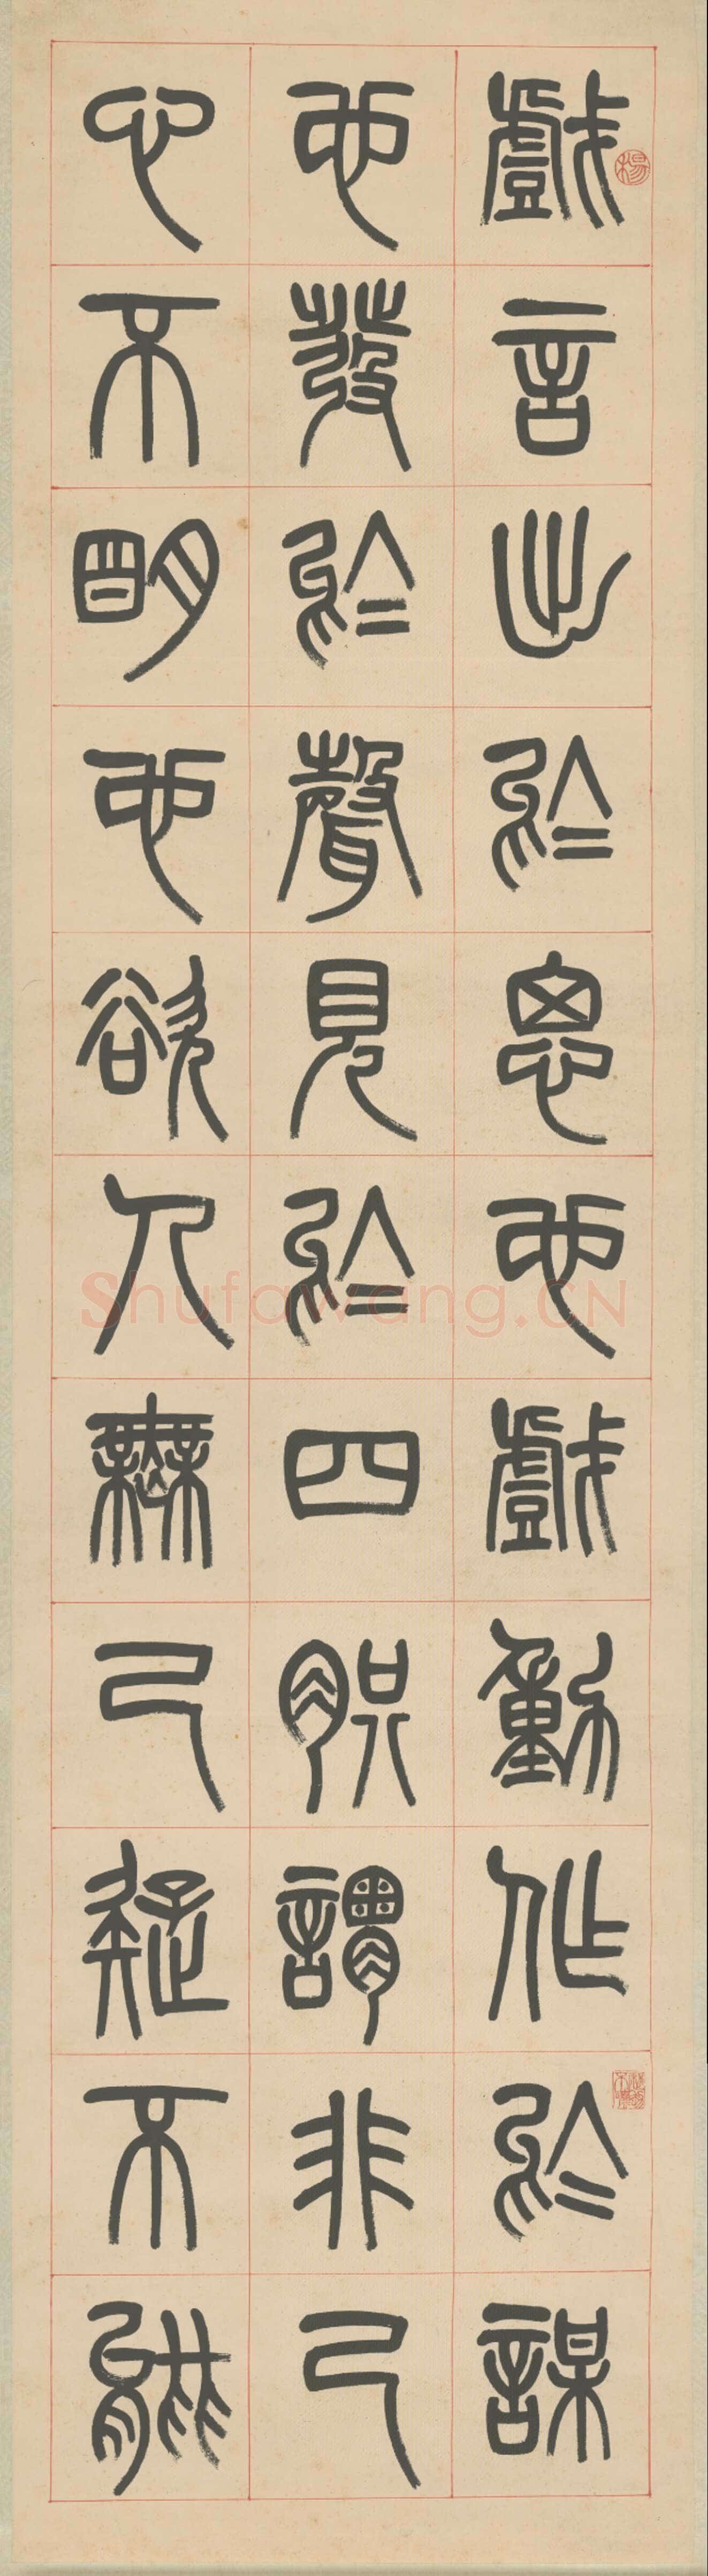 戲言出於思也戲動作於謀
也發於聲見於四肢謂非己
心不明也欲人無己疑不能
Shufawang.CN